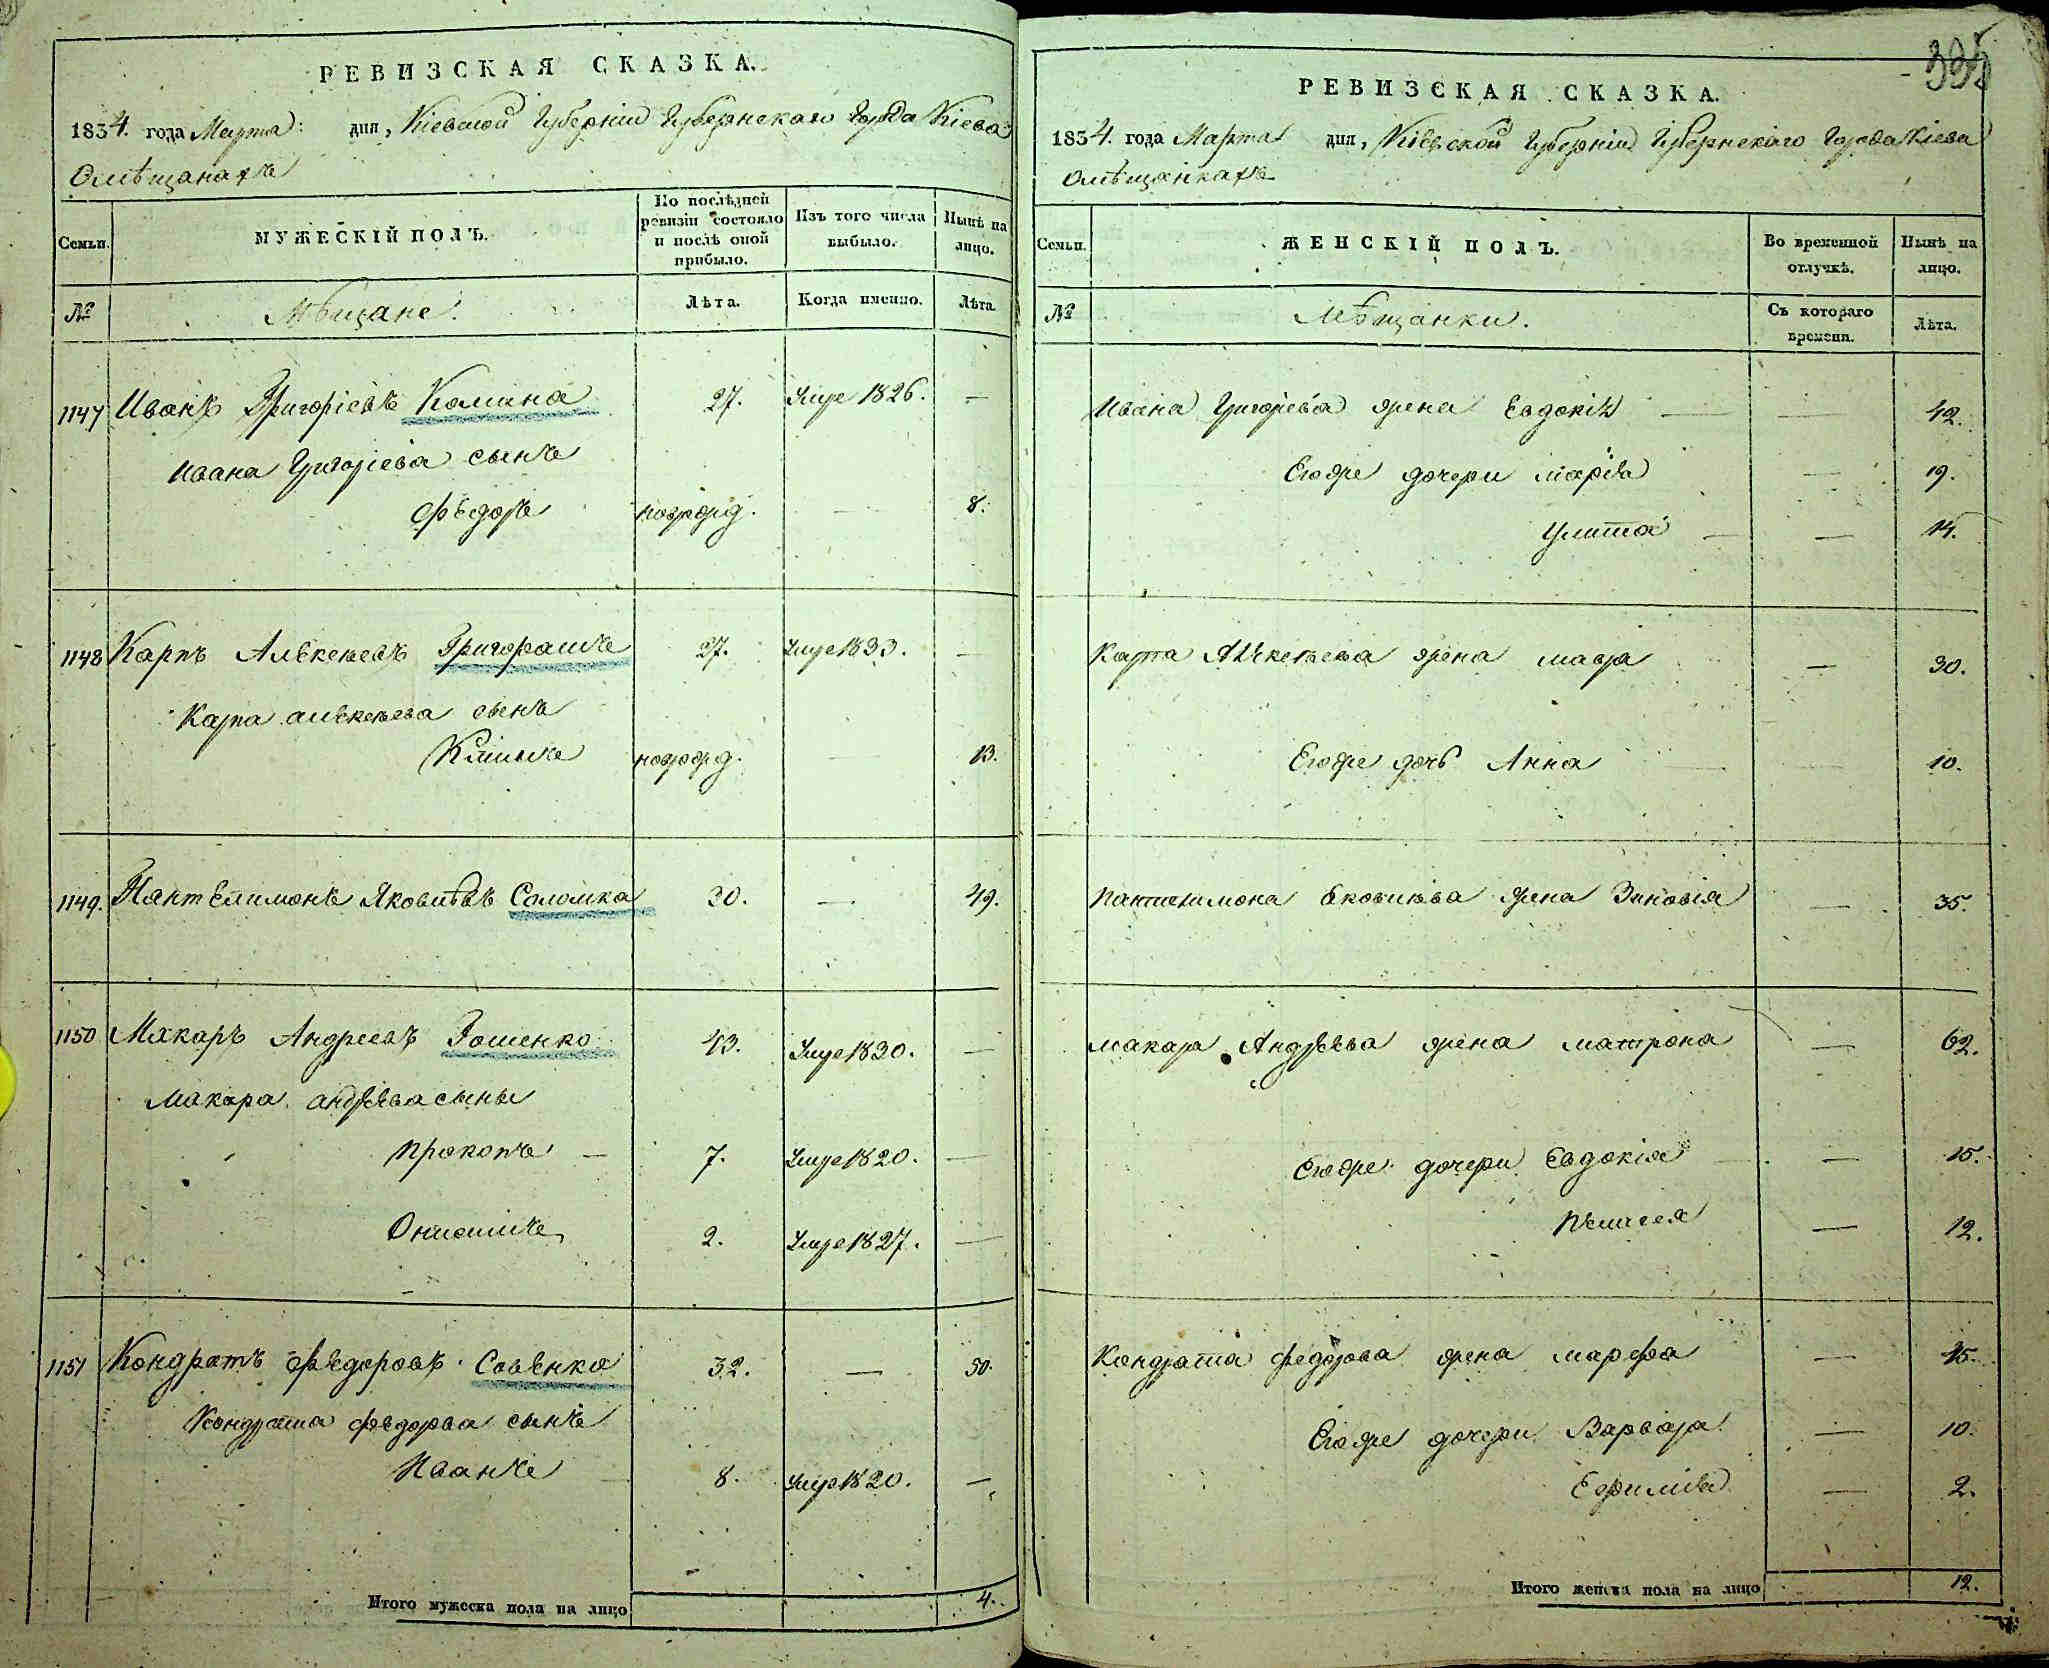 РЕВИЗСКАЯ СКАЗКА.
1834. года Марта дня, Кіевской Губерніи Губернскаго Города Кіева
О мѣщанахъ
Семьи.
МУЖЕСКІЙ ПОЛЪ.
По послѣдней ревизіи состояло и послѣ оной прибыло.
Изъ того числа выбыло.
Нынѣ на лицо.
№
Мѣщане.
Лѣта.
Когда именно.
Лѣта.
1147 Иванъ Григоріевъ Калина 27. Умре 1826. —
Ивана Григоріева сынъ
Ѳедоръ новорожд. — 8.
1148 Карпъ Алѣксѣевъ Григорашъ 27. Умре 1833. —
Карпа Алѣксѣева сынъ
Климъ новорожд. — 13.
1149. Пантелимонъ Яковлевъ Соломка 30. — 49.
1150 Макаръ Андреевъ Гошенко 43. Умре 1830. —
Макара Андрѣева сыны
Прокопъ — 7. Умре 1820. —
Онисимъ 2. Умре 1827. —
1151 Кондратъ Федоровъ Савѣнко 32. — 50
Кондрата Федорова сынъ
Иванъ 8. Умре 1820. —
Итого мужеска пола на лицо 4.
395
РЕВИЗСКАЯ СКАЗКА.
1834. года Марта дня, Кіевской Губерніи Губернскаго Города Кіева
О мѣщанкахъ
Семьи.
ЖЕНСКІЙ ПОЛЪ.
Во временной отлучкѣ.
Нынѣ на лицо.
№
Мѣщанки.
Съ котораго времени.
Лѣта.
Ивана Григорьева жена Евдокія — — 42.
Его же дочери Марія — 19.
Улита — — 14.
Карпа Алѣксѣева жена Мавра — 30.
Его же дочь Анна — — 10.
Пантелимона Яковлева жена Зиновія — 35.
Макара Андрѣева жена Матрона — 62.
Его же дочери Евдокія — — 15.
Пелагея — 12.
Кондрата Федорова жена Марфа — 45.
Его же дочери Варвара — 10.
Ефимія — 2.
Итого женска пола на лицо 12.